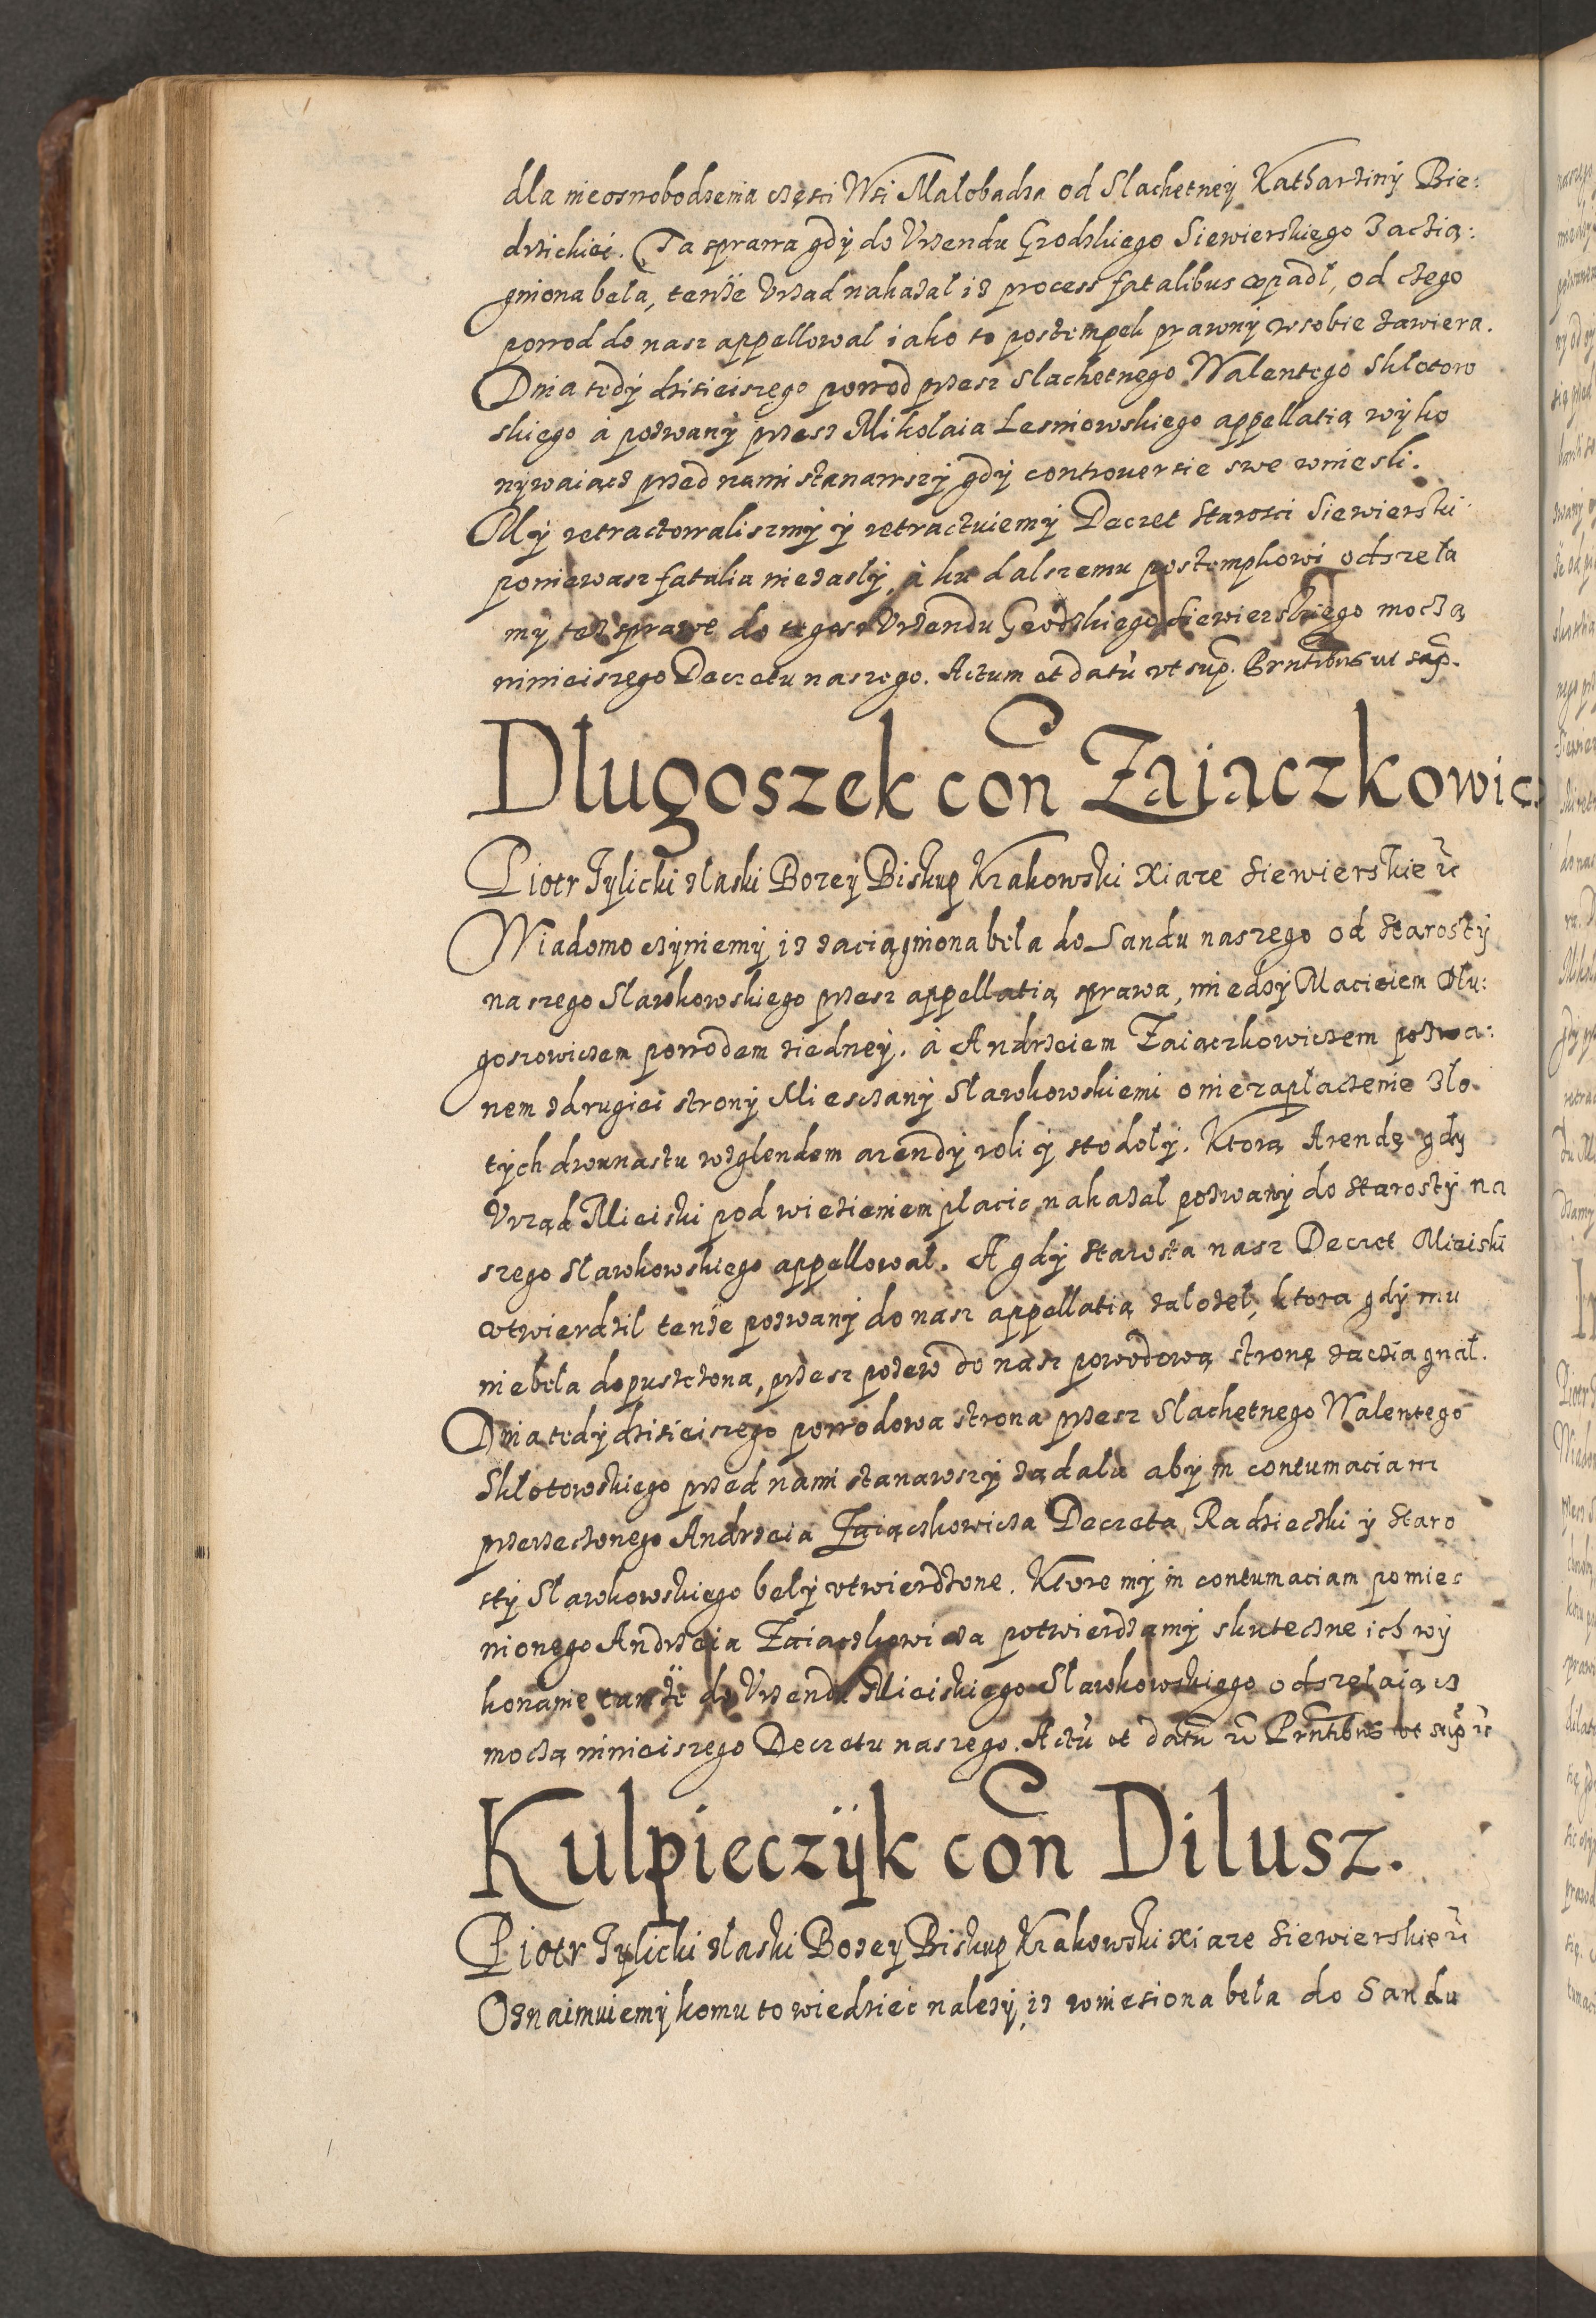 dla nieoswobodzenia części Wsi Małobadza od Slachetney Katharziny Bie:
drzickiei. Ta sprawa gdÿ do Vrzendu Grodzkiego Siewierskiego zaczią:
gniona beła, tenże Vrzad nakazał iz process fatalibus vpadł, od czego
powod do nasz appellował iako to postempek prawny w sobie zawiera.
Dnia tedÿ dzisieiszego powod przesz Slachetnego Walentego Skłotow
skiego à pozwanÿ przesz Mikolaia Lesniowskiego appellatią wÿko
nywaiącz przed nami stanawszÿ gdÿ controuersie swe wniesli.
Mÿ retractowaliszmÿ ÿ retractuiemÿ Decret Starosci Siewierski
poniewasz fatalia niezaszłÿ, à ku dalszemu postempkowi odszeła
mÿ tez sprawe do tegosz Vrzendu Grodzkiego Siewierskiego moczą
ninieiszego Decretu naszego. Actum et datũ vt sup. Prntibus ut sup.
Dlugoszek con Zaiaczkowicz
Piotr Tylicki z łaski Bozeÿ Biskup Krakowski Xiaze Siewierskie rc
Wiadomo czÿniemÿ iz zaciągniona beła do Sandu naszego od Starostÿ
naszego Sławkowskiego przesz appellatią sprawa, miedzÿ Macieiem Dłu:
goszowiczem powodem ziedneÿ. à Andrzeiem Zaiączkowiczem pozwa:
nem zdrugiei stronÿ Miesczanÿ Sławkowskiemi o niezapłaczenie Zło
tÿch dwunastu wzglendem arendÿ roli ÿ stodołÿ. Którą Arendę gdy
Vrząd Mieiski pod wiezieniem płacic nakazał pozwanÿ do Starostÿ na
szego Sławkowskiego appellował. A gdÿ Starosta nasz Decret Mieiski
vtwierdził tenże pozwanÿ do nasz appellatią założeł, ktora gdÿ mu
niebeła dopusczona, przesz pozew do nasz powodową stronę zacziagnał.
Dnia tedÿ dzisieiszego powodowa strona przesz Slachetnego Walentego
Skłotowskiego przed nami stanawszÿ żądała abÿ in contumaciam
przerzeczonego Andrzeia Zaiączkowicza Decreta Radzieczki ÿ Staro
stÿ Sławkowskiego bełÿ vtwierdzone. Które mÿ in contumaciam pomie
nionego Andrzeia Zaiaczkowicza potwierdzamÿ skuteczne ich wÿ
konanie tamże do Vrzendu Mieiskiego Sławkowskiego odszełaiącz
moczą ninieiszego Decretu naszego. Actũ et datũ rc Prntibus vt sup rc
Kulpieczÿk con Dilusz.
Piotr Tylicki z łaski Bozeÿ Biskup Krakowski Xiaze Siewierskie rc
Oznaimuiemÿ komu to wiedziec nalezÿ, iz wniesiona beła do Sandu